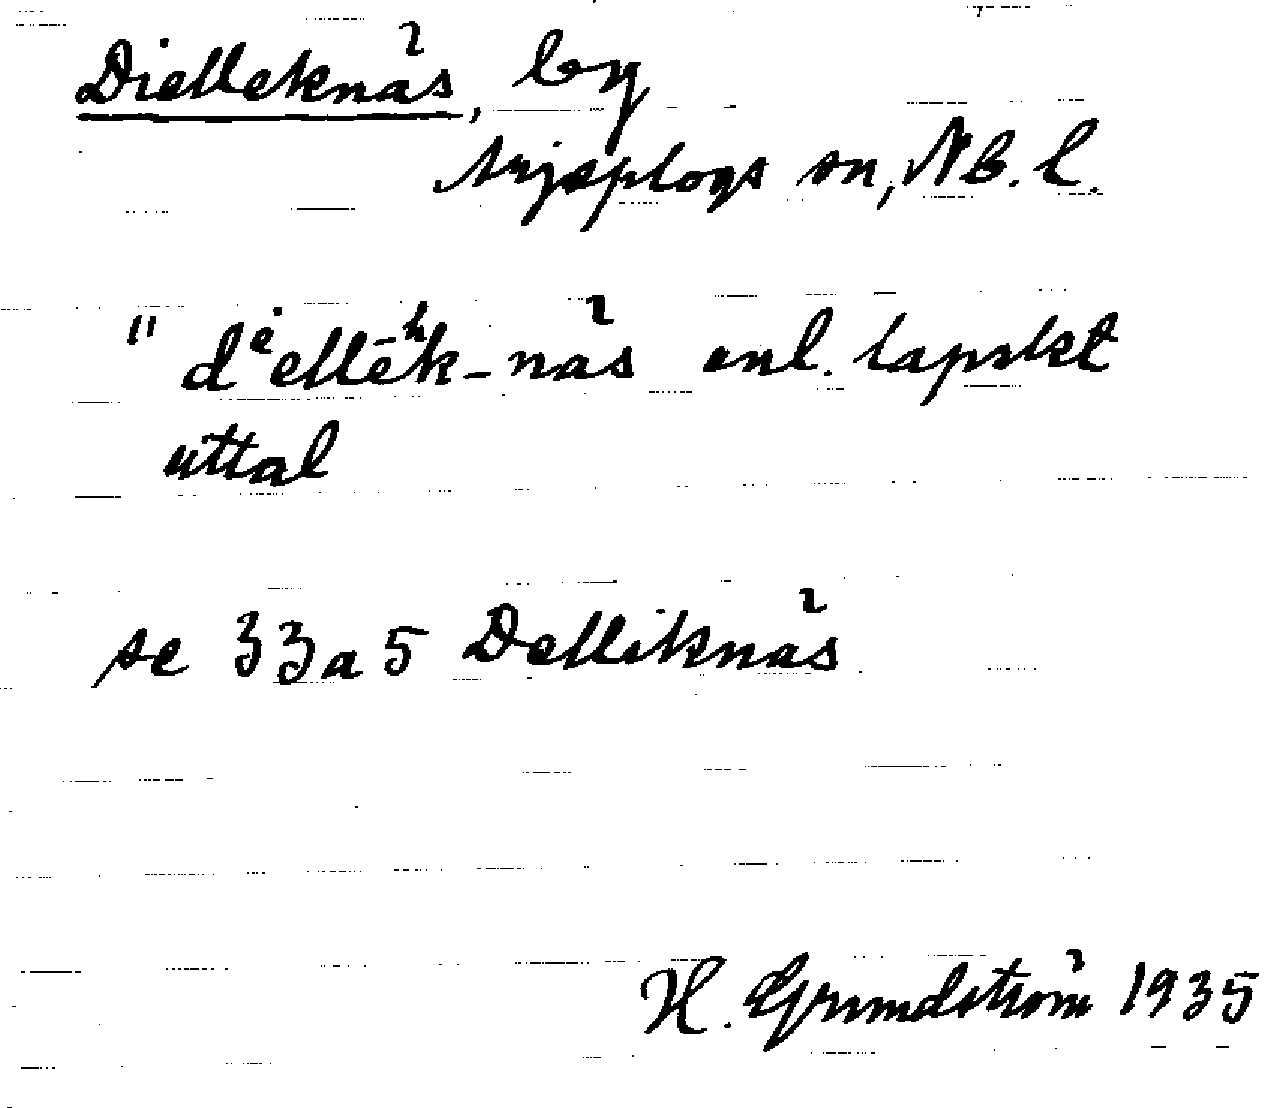 Dielleknäs, by
Arjeplogs sn, Nb. l.
" dᵉellē̆ʰk-näs enl. lapskt
uttal
se 33a5 Delliknäs
H. Grundström 1935